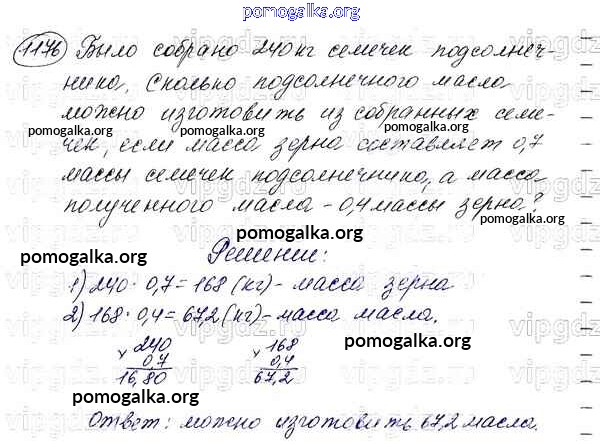 pomogalka.org
1176 Было собрано 240 кг семечек подсолнеч-
ника. Сколько подсолнечного масла
можно изготовить из собранных семе-
pomogalka.org pomogalka.org
чек, если масса зерна составляет 0,7
массы семечек подсолнечника, а масса
полученного масла - 0,4 массы зерна?
pomogalka.org
pomogalka.org
Решение:
pomogalka.org
1) 240 · 0,7 = 168 (кг) - масса зерна
2) 168 · 0,4 = 67,2 (кг) - масса масла.
240 168
× 0,7 × 0,4
pomogalka.org
16,80 67,2
pomogalka.org
pomogalka.org
Ответ: можно изготовить 67,2 масла.
pomogalka.org